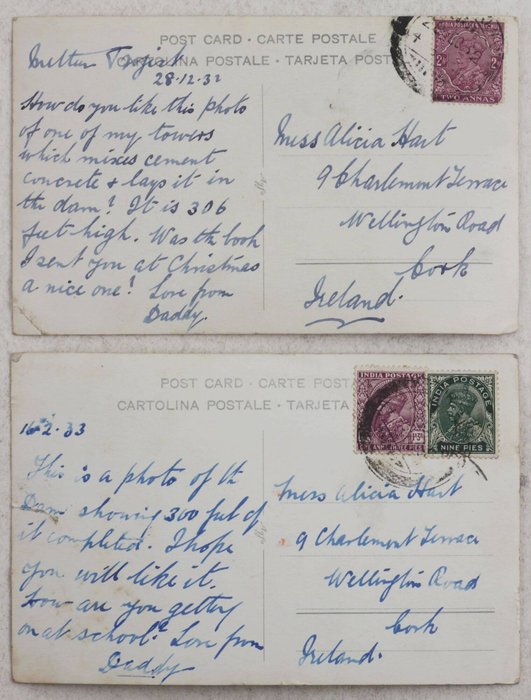 POST CARD - CARTE POSTALE
CARTOLINA POSTALE - TARJETA POST
Mettur Project
28.12.32
How do you like this photo
of one of my towers
which mixes cement
concrete & lays it in
the dam? It is 306
feet high. Was the book
I sent you at Christmas
a nice one? Love from
Daddy.
INDIA POSTAGE
2A
TWO ANNAS
Miss Alicia Hart
9 Charlemont Terrace
Wellington Road
Cork
Ireland.
POST CARD - CARTE POSTA
CARTOLINA POSTALE - TARJETA
16.2.33
This is a photo of the
Dam showing 300 feet of
it completed. I hope
you will like it.
How are you getting
on at school? Love from
Daddy
INDIA POSTAGE
INDIA POSTAGE
NINE PIES
Miss Alicia Hart
9 Charlemont Terrace
Wellington Road
Cork
Ireland.